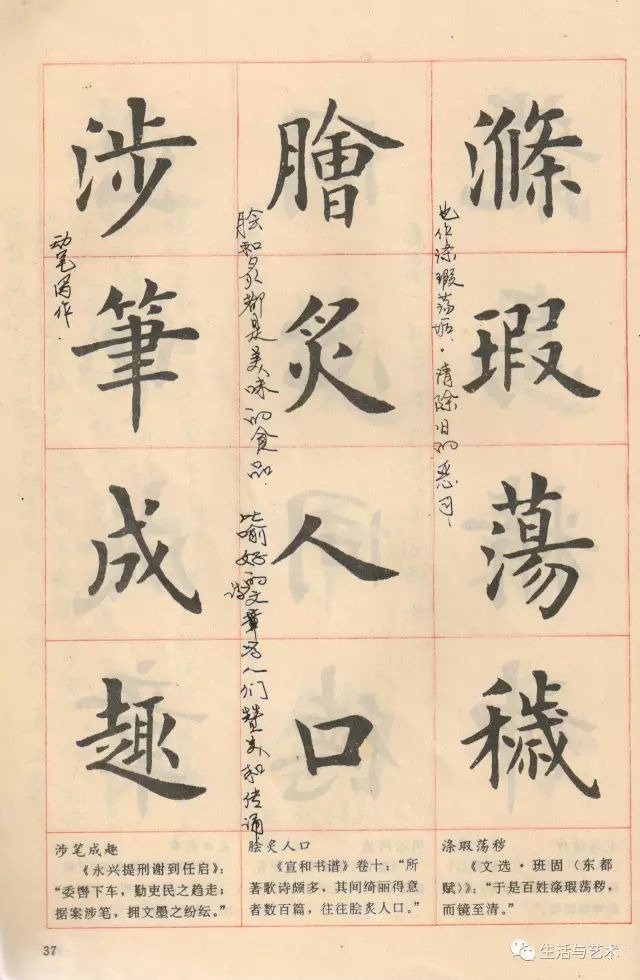 滌瑕蕩穢
膾炙人口
涉筆成趣
也作涤瑕荡垢·清除旧的恶习
脍和炙都是美味的食品 比喻好的诗文章为人们赞美和传诵
动笔写作
涤瑕荡秽
《文选·班固〈东都
赋〉》：“于是百姓涤瑕荡秽，
而镜至清。”
脍炙人口
《宣和书谱》卷十：“所
著歌诗颇多，其间绮丽得意
者数百篇，往往脍炙人口。”
涉笔成趣
《永兴提刑谢到任启》：
“委辔下车，勤吏民之趋走；
据案涉笔，拥文墨之纷纭。”
37
生活与艺术